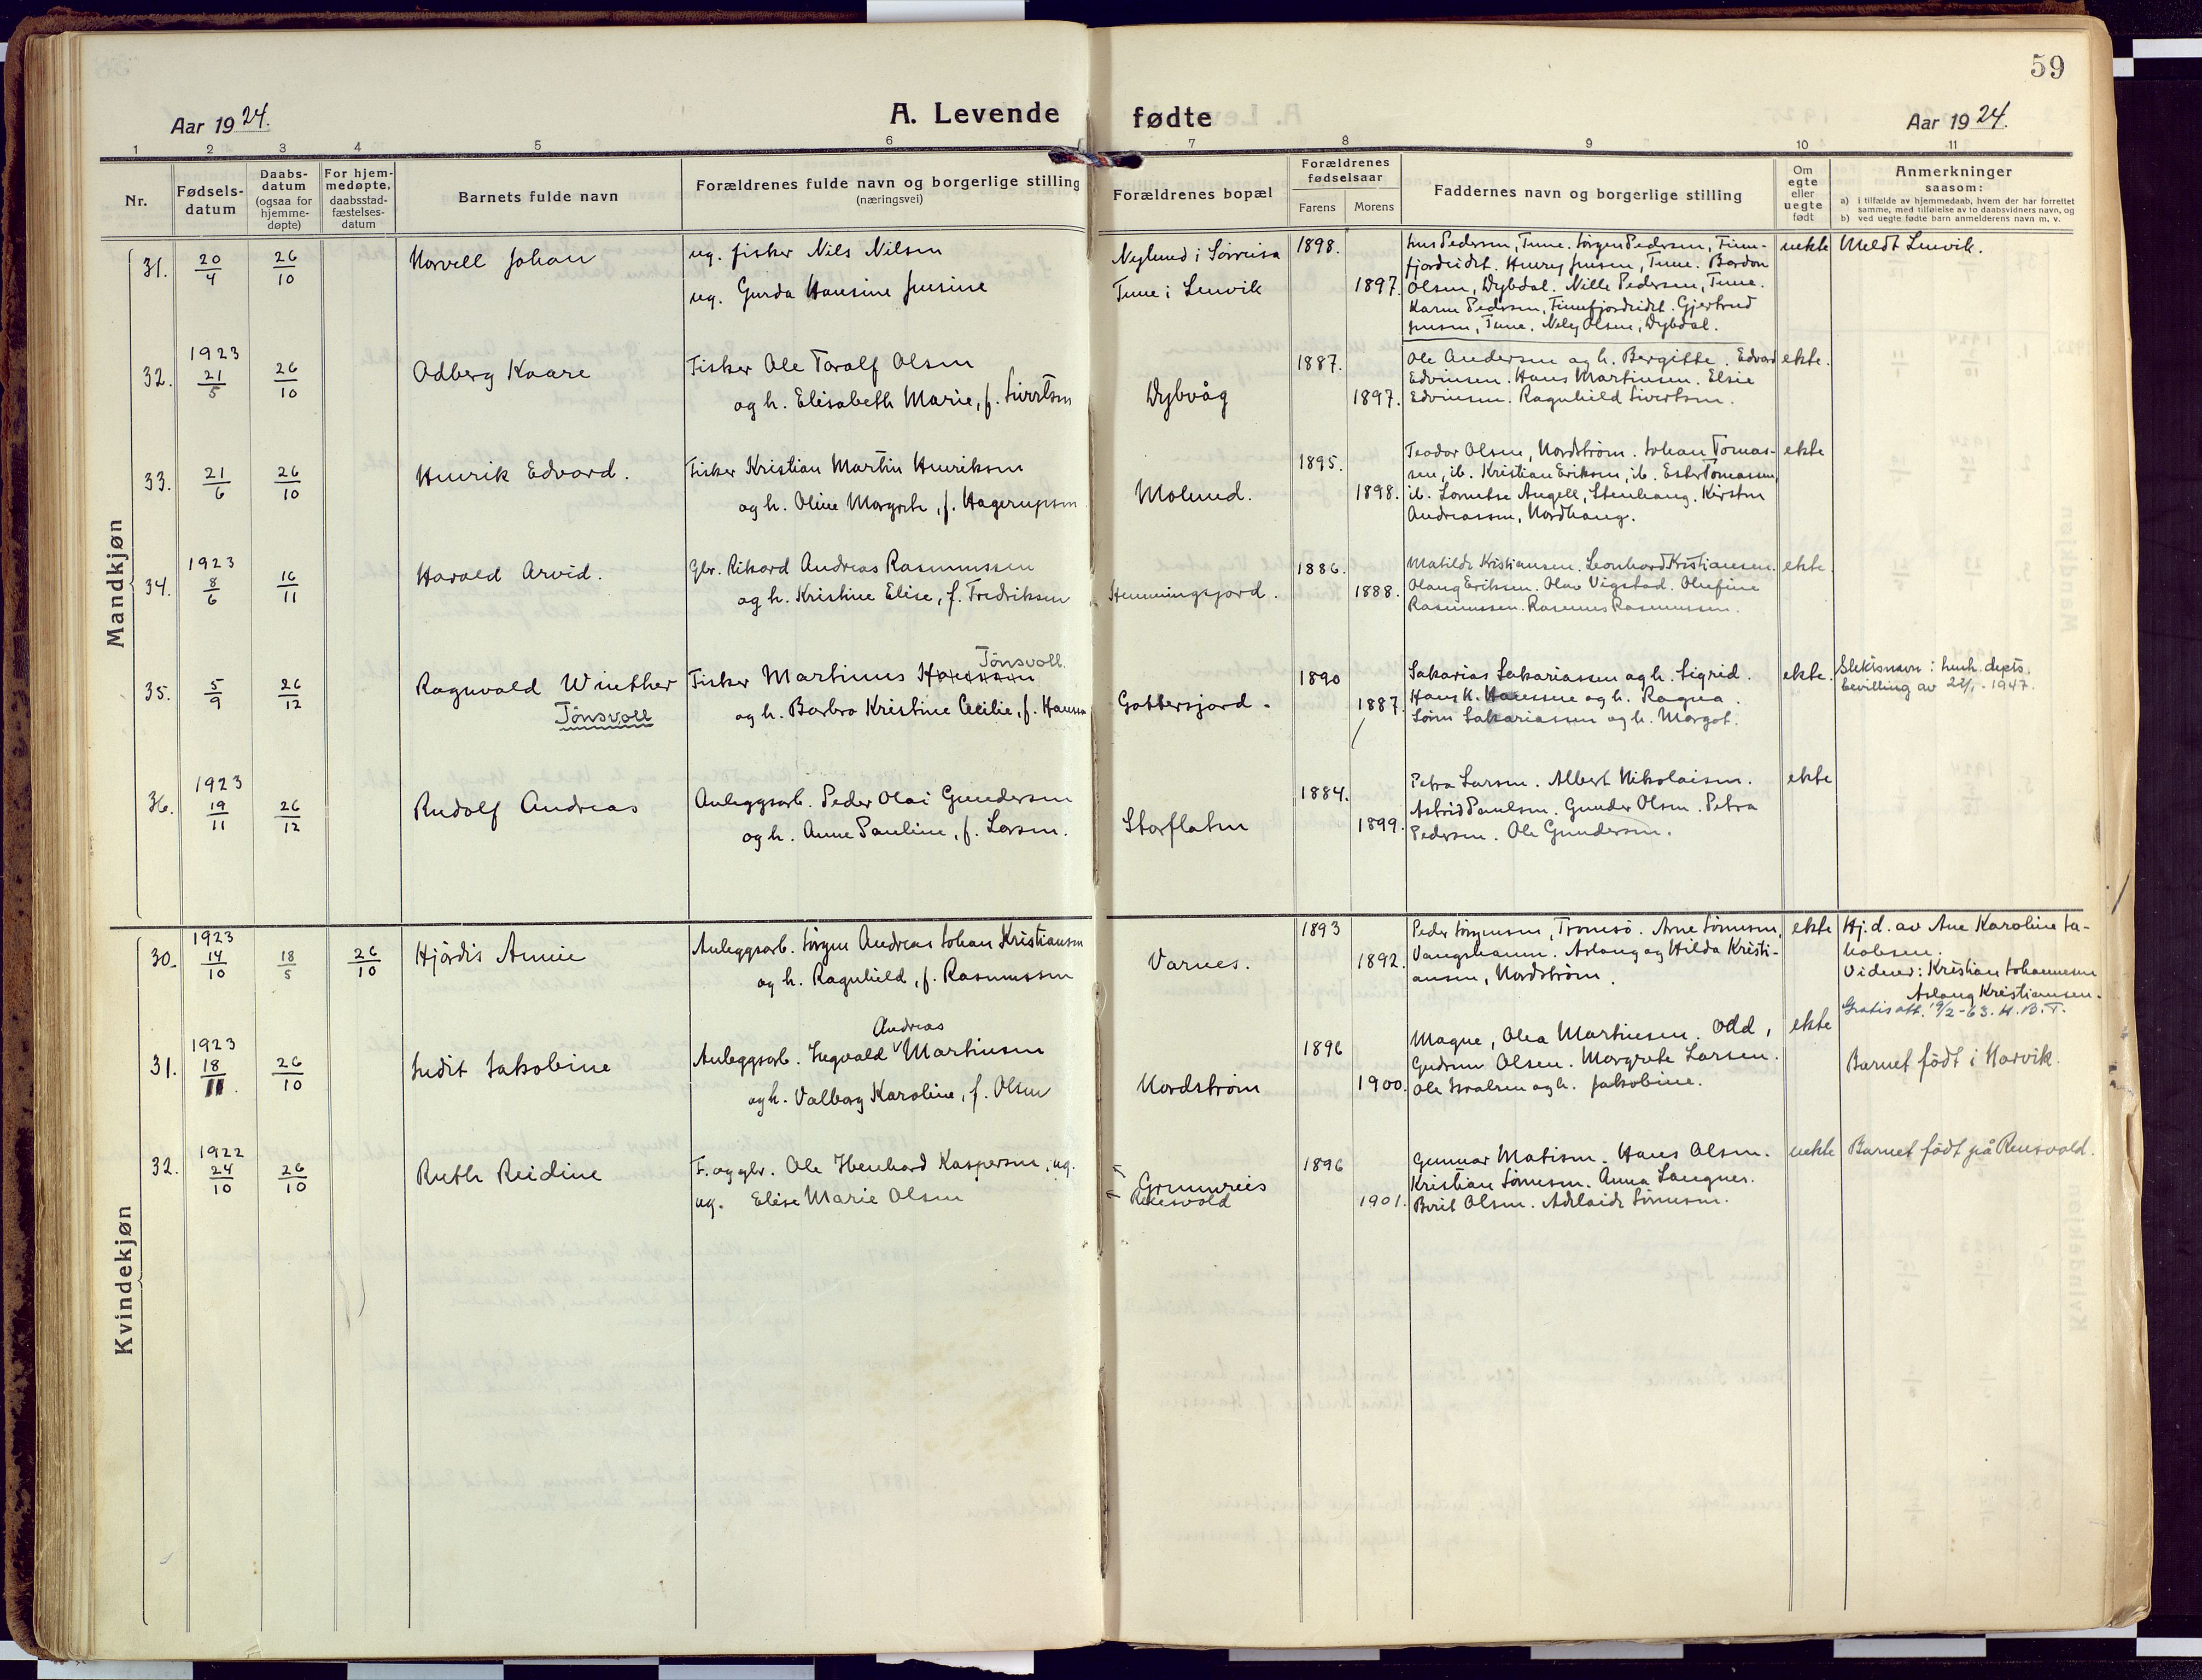 59
Aar 1924.
A. Levende fødte
Aar 1924.
1 2 3 4 5 6 7 8 9 10 11
Nr.
Fødsels-
datum
Daabs-
datum
(ogsaa for
hjemme-
døpte)
For hjem-
medøpte,
daabsstad-
fæstelses-
datum
Barnets fulde navn
Forældrenes fulde navn og borgerlige stilling
(næringsvei)
Forældrenes bopæl
Forældrenes
fødselsaar
Farens Morens
Faddernes navn og borgerlige stilling
Om
egte
eller
uegte
født
Anmerkninger
saasom:
a) i tilfælde av hjemmedaab, hvem der har forrettet
samme, med tilføielse av to daabsvidners navn, og
b) ved uegte fødte barn anmelderens navn m. v.
Mandkjøn
31. 20/4 26/10
Norvell Johan
ug. fisker Nils Nilsen
ug. Gurda Hansine Jensine
Nylund i Sörreisa
Tune i Lenvik
1898.
1897.
Jens Pedersen, Tune. Jörgen Pedersen, Finn-
fjordeidet. Henry Jensen, Tune. Bardon
Olsen, Dybdal. Nille Pedersen, Tune.
Karen Pedersen, Finnfjordeidet. Gjertrud
Jensen, Tune. Nely Olsen, Dybdal.
uekte
Meldt Lenvik.
32. 1923 21/5 26/10
Odberg Kaare
Fisker Ole Toralf Olsen
og h. Elisabeth Marie, f. Sivertsen
Dybvåg
1887.
1897.
Ole Andersen og h. Bergitte. Edvard
Edvinsen. Hans Martinsen. Elsie
Edvinsen. Ragnhild Sivertsen.
ekte.
33. 21/6 26/10
Henrik Edvard.
Fisker Kristian Martin Henriksen
og h. Oline Margrete, f. Hagerupsen
Molund.
1895.
1898.
Teodor Olsen, Nordström. Johan Tomas-
sen, ib. Kristian Eriksen, ib. Ester Tomassen,
ib. Lorentse Angell, Stenhaug. Kirsten
Andreassen, Nordhaug.
ekte
34. 1923 8/6 16/11
Harald Arvid.
Gbr. Rikard Andreas Rasmussen
og h. Kristine Elise, f. Fredriksen
Hemmingsjord.
1886.
1888.
Matilde Kristiansen. Leonhard Kristiansen.
Olaug Eriksen. Olav Vigstad. Olufine
Rasmussen. Rasmus Rasmussen.
ekte.
35. 5/9 26/12
Ragnvald Winther
Tönsvoll
Tönsvoll.
Fisker Martinus Hansen
og h. Barbro Kristine Cecilie, f. Hansen
Gottersjord.
1890
1887.
Sakarias Sakariassen og h. Sigrid.
Hans K. Hansen og h. Ragna.
Sören Sakariassen og h. Margot.
ekte.
Slektsnavn: henh. depts.
bevilling av 22/1. - 1947.
36. 1923 19/11 26/12
Rudolf Andreas
Anleggsarb. Peder Olai Gundersen
og h. Anne Pauline, f. Larsen.
Storflaten
1884.
1899.
Petra Larsen. Albert Nikolaisen.
Astrid Paulsen. Gunder Olsen. Petra
Pedersen. Ole Gundersen.
ekte
Kvindekjøn
30. 1923 14/10 18/5 26/10
Hjördis Annie
Anleggsarb. Jörgen Andreas Johan Kristiansen
og h. Ragnhild, f. Rasmussen
Varnes.
1893
1892.
Peder Jörgensen, Tromsö. Arne Sörensen,
Vangshamn. Aslaug og Hilda Kristi-
ansen, Nordström.
ekte
Hj.d. av Ane Karoline Ja-
kobsen.
Vidner: Kristian Johannesen
Aslaug Kristiansen.
Gratis att. 19/2-63. H.B.T.
31. 1923 18/11. 26/10
Judit Jakobine
Andreas
Anleggsarb. Segvald Martinsen
og h. Valborg Karoline, f. Olsen
Nordström
1896
1900.
Magne, Olea Martinsen. Odd,
Gudrun Olsen. Margrete Larsen.
Ole Isralsen og h. Jakobine.
ekte
Barnet födt i Narvik.
32. 1922 24/10 26/10
Ruth Reidine
F. og gbr. Ole Henhard Kaspersen, ug.
ug. Elise Marie Olsen
Grunnreis
1896
1901.
Gunnar Matisen. Hans Olsen.
Kristian Sörensen. Anna Langnes.
Berit Olsen. Adelaide Sörensen.
uekte
Barnet födt på Rensvold.